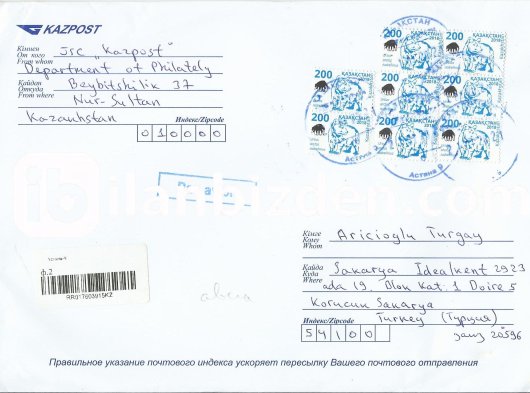 KAZPOST
Кімнен
От кого
From whom
JSC "Kazpost"
Department of Philately
Қайдан
Откуда
From where
Beybitshilik 37
Nur-Sultan
Kazakhstan
Индекс/Zipcode
010000
ҚАЗАҚСТАН
200
ҚАЗАҚСТАН
2018
200
200
200
200
200
200
200
Астана
ilanbizden.com
Кімге
Кому
Whom
Aricioglu Turgay
Қайда
Куда
Where
Sakarya Idealkent 2923
ada 19. Blok Kat: 1 Daire 5
Korucuk Sakarya
Turkey (Турция)
Индекс/Zipcode
54100
заң 20596
ф.2
RR017603915KZ
avia
Правильное указание почтового индекса ускоряет пересылку Вашего почтового отправления